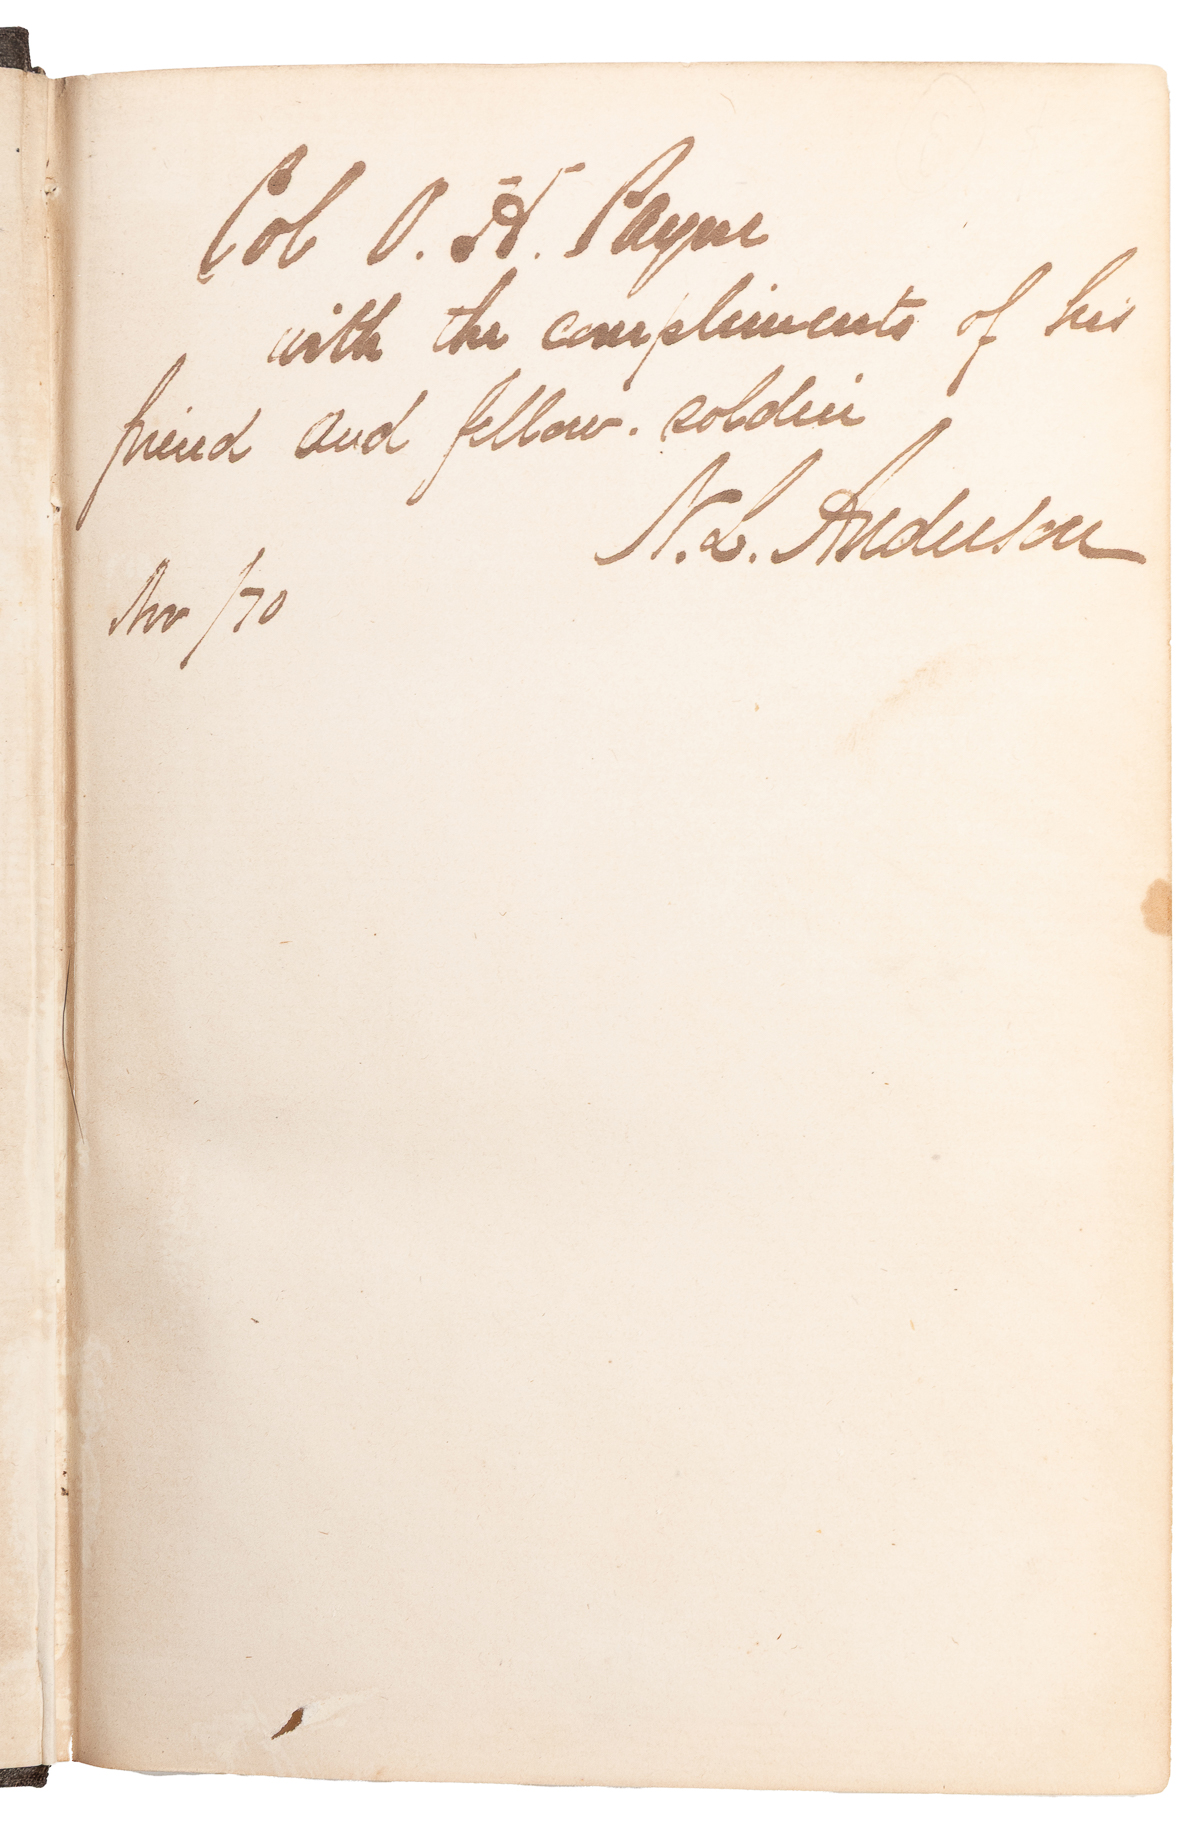 Col O. H. Payne
with the compliments of his
friend and fellow-soldier
N. L. Anderson
Nov /70